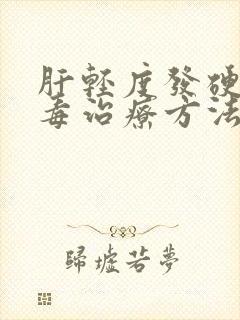 肝轻度發硬
毒治療方法
歸墟若夢